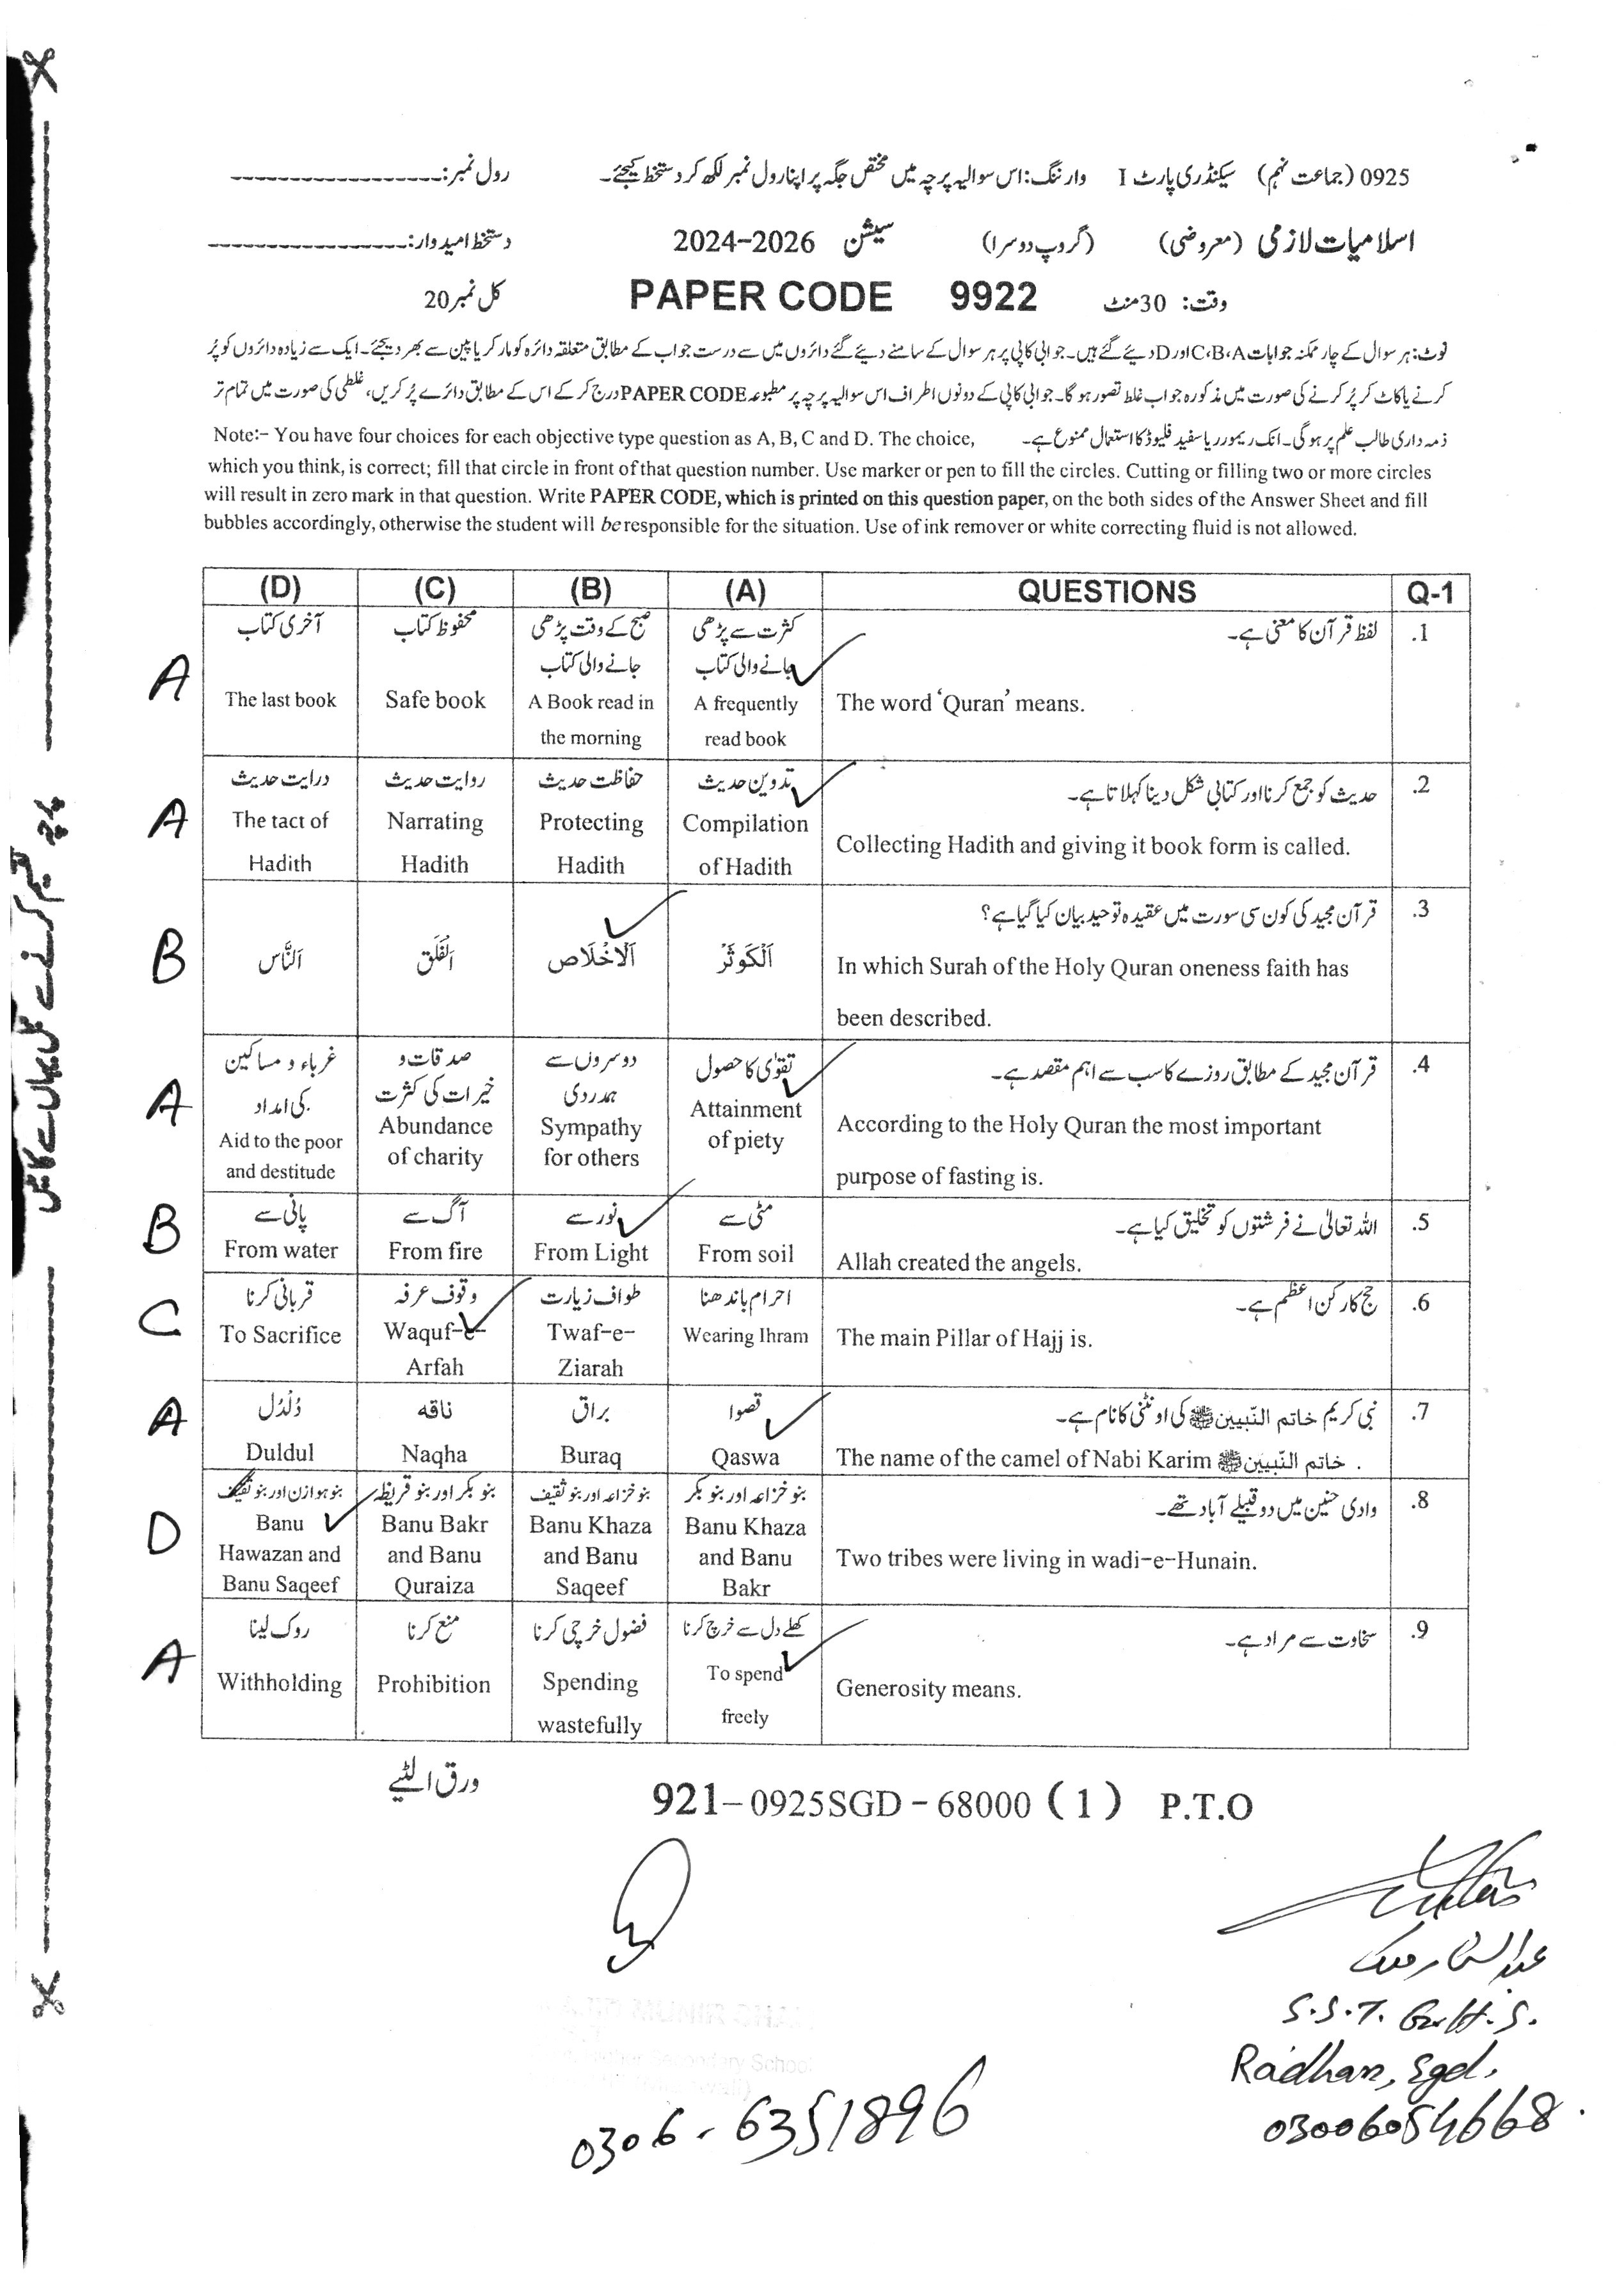 0925 (جماعت نہم) سیکنڈری پارٹ I وارننگ: اس سوالیہ پرچہ میں مختص جگہ پر اپنا رول نمبر لکھ کر دستخط کیجئے۔ رول نمبر:
اسلامیات لازمی (معروضی) (گروپ دوسرا) سیشن 2024-2026 دستخط امیدوار:
وقت: 30 منٹ PAPER CODE 9922 کل نمبر 20
نوٹ: ہر سوال کے چار ممکنہ جوابات C،B،A اور D دیئے گئے ہیں۔ جوابی کاپی پر ہر سوال کے سامنے دیئے گئے دائروں میں سے درست جواب کے مطابق متعلقہ دائرہ کو مارکر یا پین سے بھر دیجئے۔ ایک سے زیادہ دائروں کو پُر
کرنے یا کاٹ کر پُر کرنے کی صورت میں مذکورہ جواب غلط تصور ہو گا۔ جوابی کاپی کے دونوں اطراف اس سوالیہ پرچہ پر مطبوعہ PAPER CODE درج کر کے اس کے مطابق دائرے پُر کریں، غلطی کی صورت میں تمام تر
ذمہ داری طالب علم پر ہو گی۔ انک ریموور یا سفید فلیوڈ کا استعمال ممنوع ہے۔
Note:- You have four choices for each objective type question as A, B, C and D. The choice,
which you think, is correct; fill that circle in front of that question number. Use marker or pen to fill the circles. Cutting or filling two or more circles
will result in zero mark in that question. Write PAPER CODE, which is printed on this question paper, on the both sides of the Answer Sheet and fill
bubbles accordingly, otherwise the student will be responsible for the situation. Use of ink remover or white correcting fluid is not allowed.
(D) (C) (B) (A) QUESTIONS Q-1
آخری کتاب محفوظ کتاب صبح کے وقت پڑھی کثرت سے پڑھی لفظ قرآن کا معنی ہے۔ .1
جانے والی کتاب جانے والی کتاب
A The last book Safe book A Book read in A frequently The word ‘Quran’ means.
the morning read book
درایت حدیث روایت حدیث حفاظت حدیث تدوین حدیث حدیث کو جمع کرنا اور کتابی شکل دینا کہلاتا ہے۔ .2
A The tact of Narrating Protecting Compilation Collecting Hadith and giving it book form is called.
Hadith Hadith Hadith of Hadith
قرآن مجید کی کون سی سورت میں عقیدہ توحید بیان کیا گیا ہے؟ .3
B اَلنَّاس اَلْفَلَق اَلْاِخْلَاص اَلْکَوثَرْ In which Surah of the Holy Quran oneness faith has
been described.
غرباء و مساکین صدقات و دوسروں سے تقوٰی کا حصول قرآن مجید کے مطابق روزے کا سب سے اہم مقصد ہے۔ .4
کی امداد خیرات کی کثرت ہمدردی
A Aid to the poor Abundance Sympathy Attainment According to the Holy Quran the most important
and destitude of charity for others of piety purpose of fasting is.
پانی سے آگ سے نور سے مٹی سے اللہ تعالٰی نے فرشتوں کو تخلیق کیا ہے۔ .5
B From water From fire From Light From soil Allah created the angels.
قربانی کرنا وقوف عرفہ طواف زیارت احرام باندھنا حج کا رکن اعظم ہے۔ .6
C To Sacrifice Waquf-e- Twaf-e- Wearing Ihram The main Pillar of Hajj is.
Arfah Ziarah
دُلْدُل ناقہ براق قصوا نبی کریم خاتم النّبیین ﷺ کی اونٹنی کا نام ہے۔ .7
A Duldul Naqha Buraq Qaswa The name of the camel of Nabi Karim خاتم النّبیین ﷺ .
بنو ہوازن اور بنو ثقیف بنو بکر اور بنو قریظہ بنو خزاعہ اور بنو ثقیف بنو خزاعہ اور بنو بکر وادی حنین میں دو قبیلے آباد تھے۔ .8
D Banu Banu Bakr Banu Khaza Banu Khaza Two tribes were living in wadi-e-Hunain.
Hawazan and and Banu and Banu and Banu
Banu Saqeef Quraiza Saqeef Bakr
روک لینا منع کرنا فضول خرچی کرنا کھلے دل سے خرچ کرنا سخاوت سے مراد ہے۔ .9
A Withholding Prohibition Spending To spend Generosity means.
wastefully freely
ورق الٹیے
921-0925SGD-68000 (1) P.T.O
S.S.T. G.H.S.
Radhan, Sgd.
03006054668.
0306-6351896